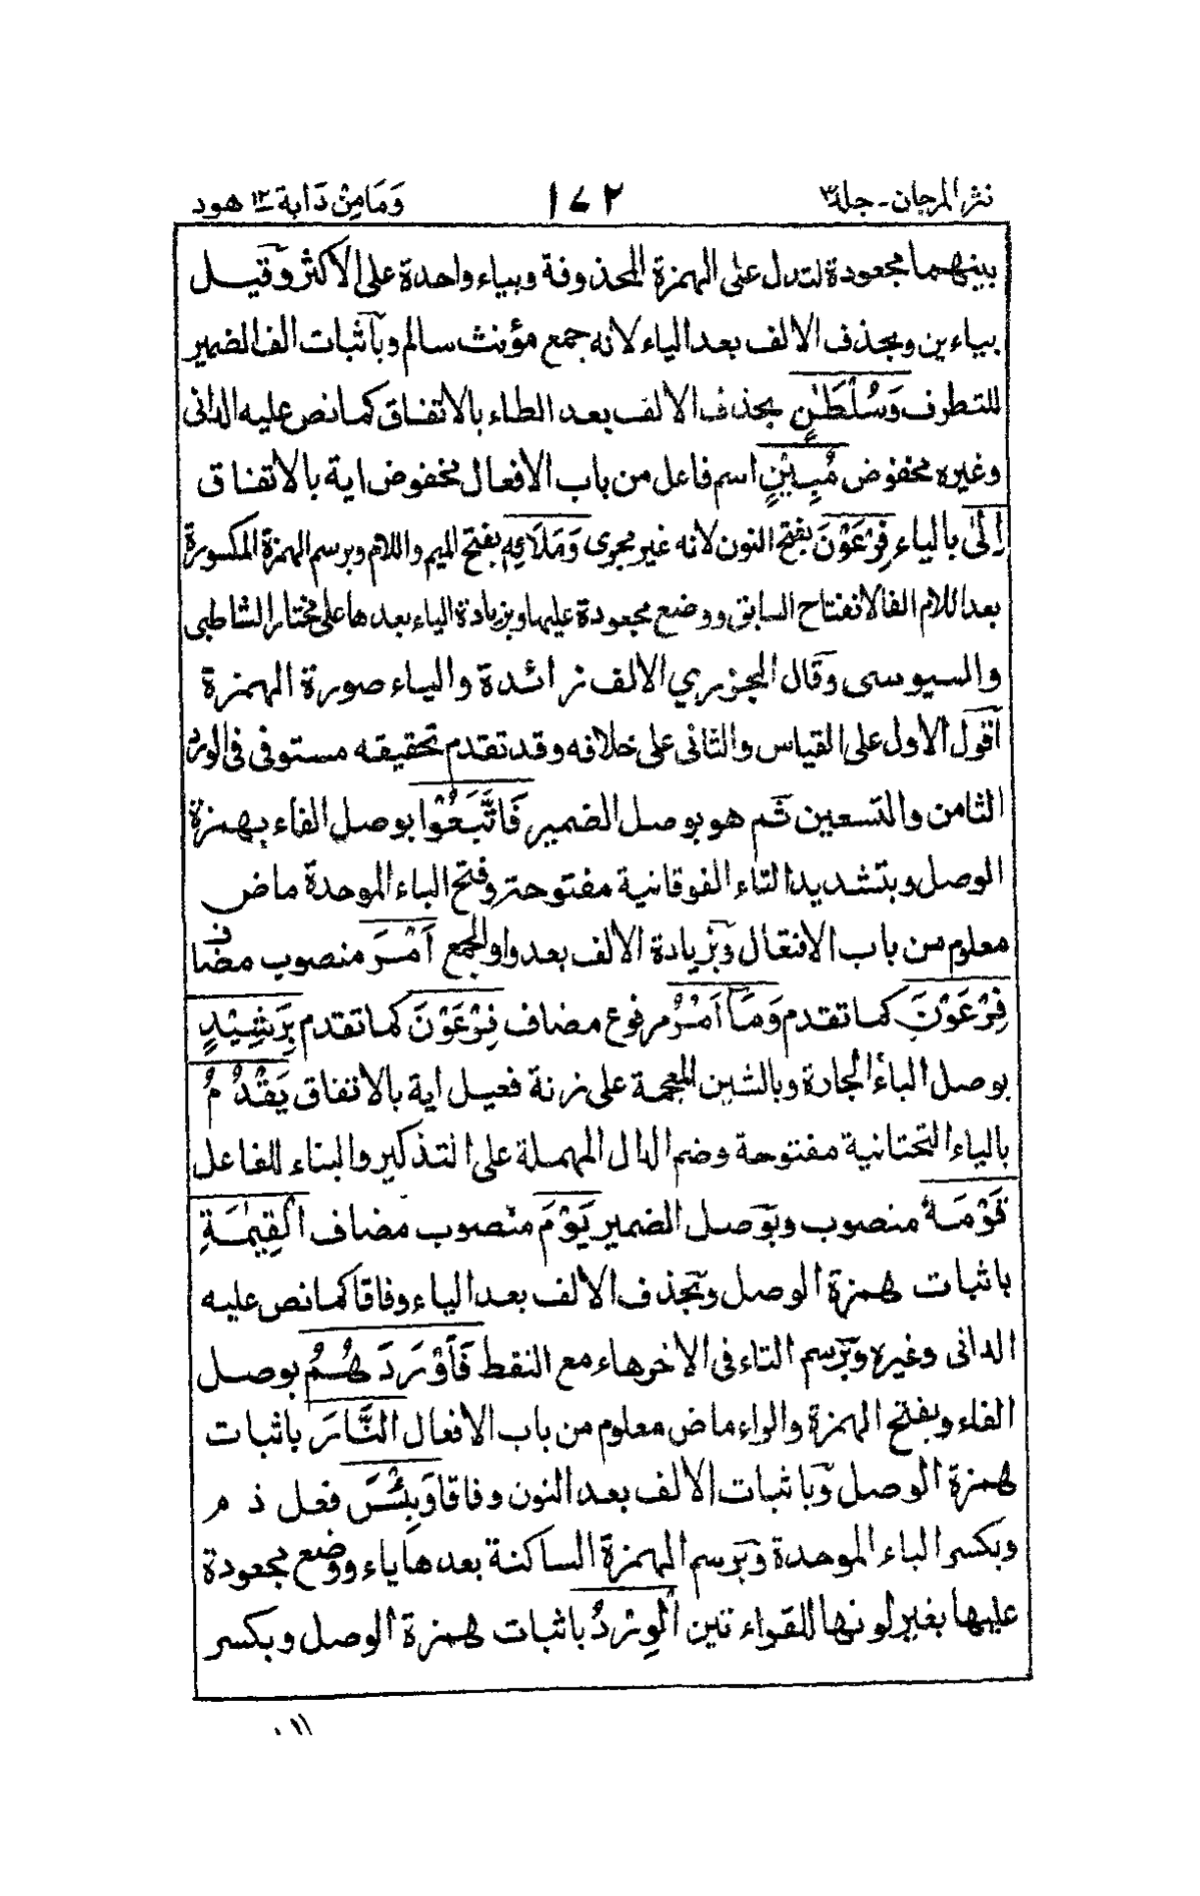 نثر المرجان - جلد ٣ ١٧٢ وَمَا مِنْ دَابة ١٢ هود
بينهما مجعودة لتدل على الهمزة المحذوفة وبياء واحدة على الاكثر وقيل
بياءين وبحذف الالف بعد الياء لانه جمع مؤنث سالم وبآثبات الف الضمير
للتطرف وَسُلْطَٰنٍ بحذف الالف بعد الطاء بالاتفاق كما نص عليه الدانى
وغيره مخفوض مُبِيْنٍ اسم فاعل من باب الافعال مخفوض اية بالاتفاق
إِلَىٰ بالياء فِرْعَوْنَ بفتح النون لانه غير مجرى وَمَلَا۟ئِهٖ بفتح الميم واللام وبرسم الهمزة المكسورة
بعد اللام الفا لانفتاح السابق ووضع مجعودة عليها وبزيادة الياء بعدها على مختار الشاطبى
والسيوسى وقال الجزري الالف زائدة والياء صورة الهمزة
آقول الاول على القياس والثانى على خلافه وقد تقدم تحقيقه مستوفى فى الورد
الثامن والتسعين ثم هو بوصل الضمير فَاتَّبَعُوْا بوصل الفاء بهمزة
الوصل وبتشديد التاء الفوقانية مفتوحة وفتح الباء الموحدة ماض
معلوم من باب الافتعال وبزيادة الالف بعد واو الجمع اَمْرَ منصوب مضاف
فِرْعَوْنَ كما تقدم وَمَآ اَمْرُ مرفوع مضاف فِرْعَوْنَ كما تقدم بِرَشِيْدٍ
بوصل الباء الجارة وبالشين المعجمة على زنة فعيل اية بالاتفاق يَقْدُمُ
بالياء التحتانية مفتوحة وضم الدال المهملة على التذكير والبناء للفاعل
قَوْمَهٗ منصوب وبوصل الضمير يَوْمَ منصوب مضاف الْقِيٰمَةِ
باثبات همزة الوصل وبحذف الالف بعد الياء وفاقا كما نص عليه
الدانى وغيره وبرسم التاء فى الاخر هاء مع النقط فَاَوْرَدَ هُمُ بوصل
الفاء وبفتح الهمزة والراء ماض معلوم من باب الافعال النَّارَ باثبات
همزة الوصل وباثبات الالف بعد النون وفاقا وَبِئْسَ فعل ذم
وبكسر الباء الموحدة وبرسم الهمزة الساكنة بعدها ياء ووضع مجعودة
عليها بغير لونها للقراءتين الْوِرْدُ باثبات همزة الوصل وبكسر